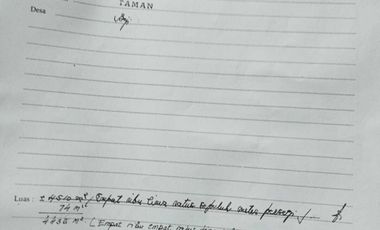 : TAMAN
Desa
Luas : ± 4510 m² / Empat ribu lima ratus sepuluh meter persegi /
74 m²
4436 m² ( Empat ribu empat ratus